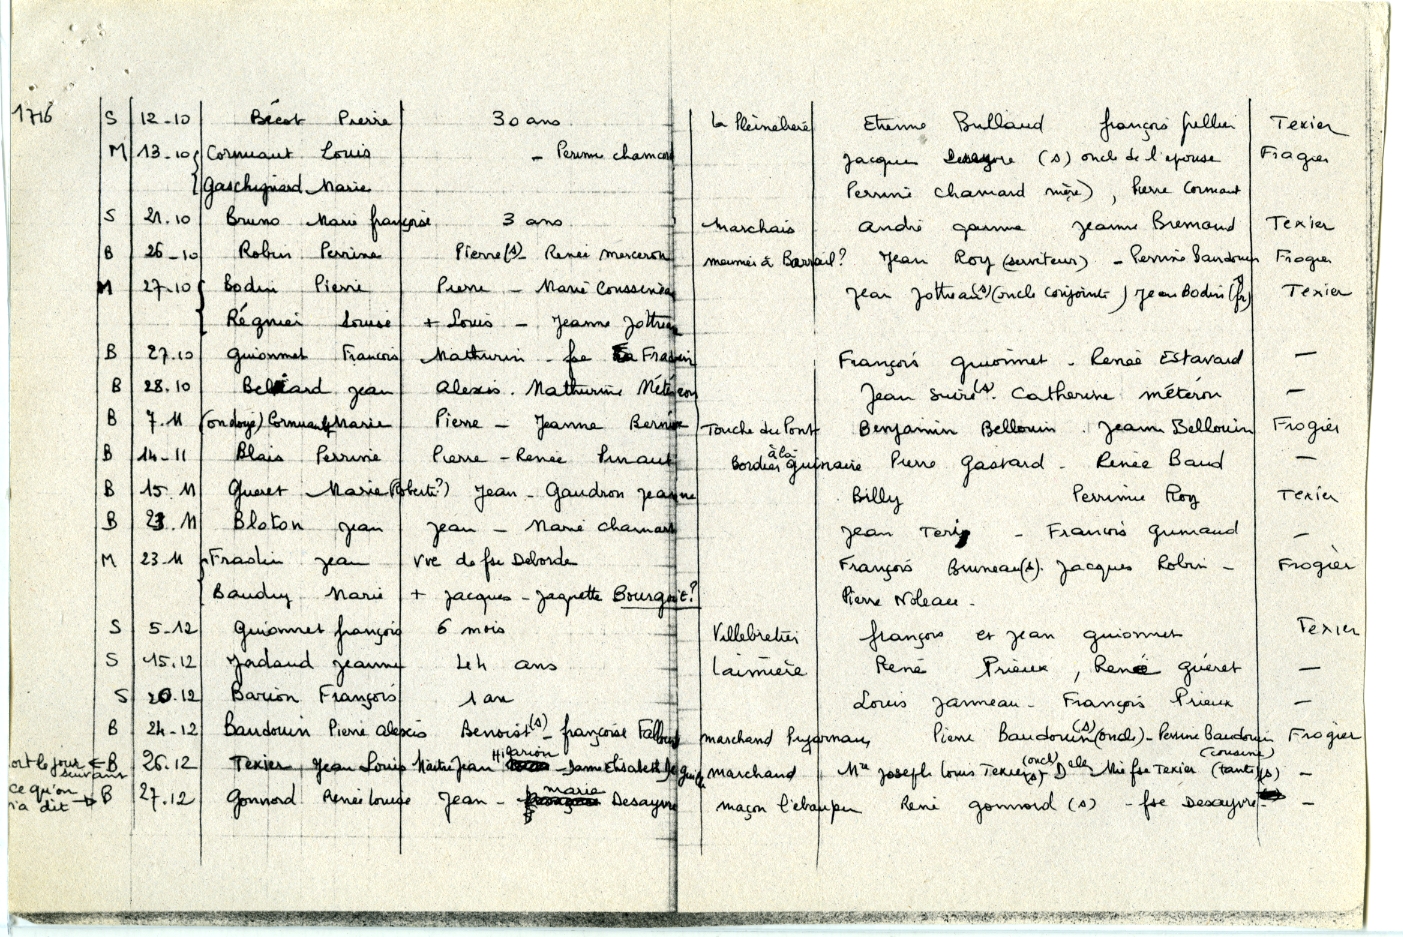 1716 S 12-10 Bécot Pierre 30 ans la Pleinelière Etienne Bullaud françois Grellier Texier
M 13-10 Cornuaut Louis - Perrine chamard Jacques Desayvre (s) oncle de l'épouse Frogier
Gaschignard Marie Perrine chamard mère), Pierre Cornuaut
S 21.10 Bruno Marie françoise 3 ans. marchais andré Jeanne Bremaud Texier
B 26-10 Robin Perrine Pierre(s) - Renée merceron meunier à Barrail? Jean Roy (serviteur) - Perrine Baudouin Frogier
M 27-10 Bodin Pierre Pierre - Marie Cousseneau Jean Jottreau(s) (oncle conjointe) Jean Bodin (fr) Texier
Régnier Louise + Louis - Jeanne Jottreau
B 27.10 guionnet François Mathurin - fse Fradin François guionnet - Renée Estavard —
B 28.10 Beliard jean alexis. Mathurine Météron Jean Suire(s). Catherine météron —
B 7.11 (ondoyé) Cornuault Marie Pierre - Jeanne Bernier Touche du Pont Benjamin Bellouin. Jeanne Bellouin Frogier
B 14-11 Blais Perrine Pierre - Renée Pinaut Bordier à la guinaire Pierre gastard - Renée Baud —
B 15.11 Gueret Marie (Roberte?) Jean - Gaudron jeanne Billy Perrine Roy Texier
B 23.11 Bloton jean jean - Marie chamard Jean - Francois grimaud —
M 23-11 Fradin jean Vve de fse Deborde François Bruneau(s). Jacques Robin - Frogier
Baudry Marie + Jacques - Jaquette Bourgoit? Pierre Noleau -
S 5-12 Guionnet françois 6 mois Villebretier françois et jean guionnet Texier
S 15.12 Jardaud jeanne 44 ans Laimière René Prieux, René guéret —
S 20.12 Barion François 1 an Louis Janneau - François Prieux —
B 24-12 Baudouin Pierre alexis Benoist(s) - françoise Fallourd marchand Puyarnaux Pierre Baudouin(s) (oncle) - Perrine Baudouin (cousine) Frogier
ort le jour suivant ← B 26.12 Texier Jean Louis Maitre Jean Hilarion - Dame Elisabeth marchand Me Joseph Louis Texier (oncle) (s) - Delle Mie fse Texier (tante) (s) —
ce qu'on n'a dit → B 27.12 Gonnord Renée Louise Jean - marie Desayvre maçon l'ebaupin René gonnord (s) - fse Desayvre - —